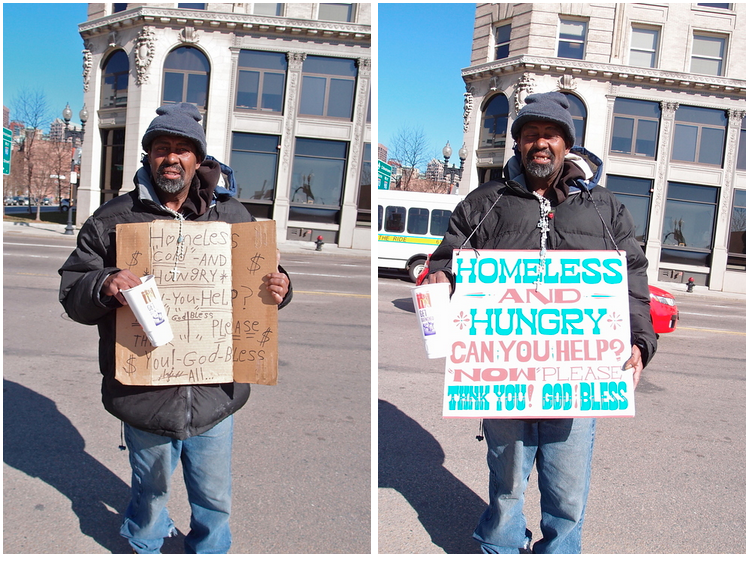 Homeless
$ COLD-AND $
*HUNGRY*
You-Help?
God BLESS
PLEASE
$ You!-God-Bless $
All...
HOMELESS
AND
HUNGRY
CAN YOU HELP?
"NOW" PLEASE
THANK YOU! GOD BLESS
THE RIDE